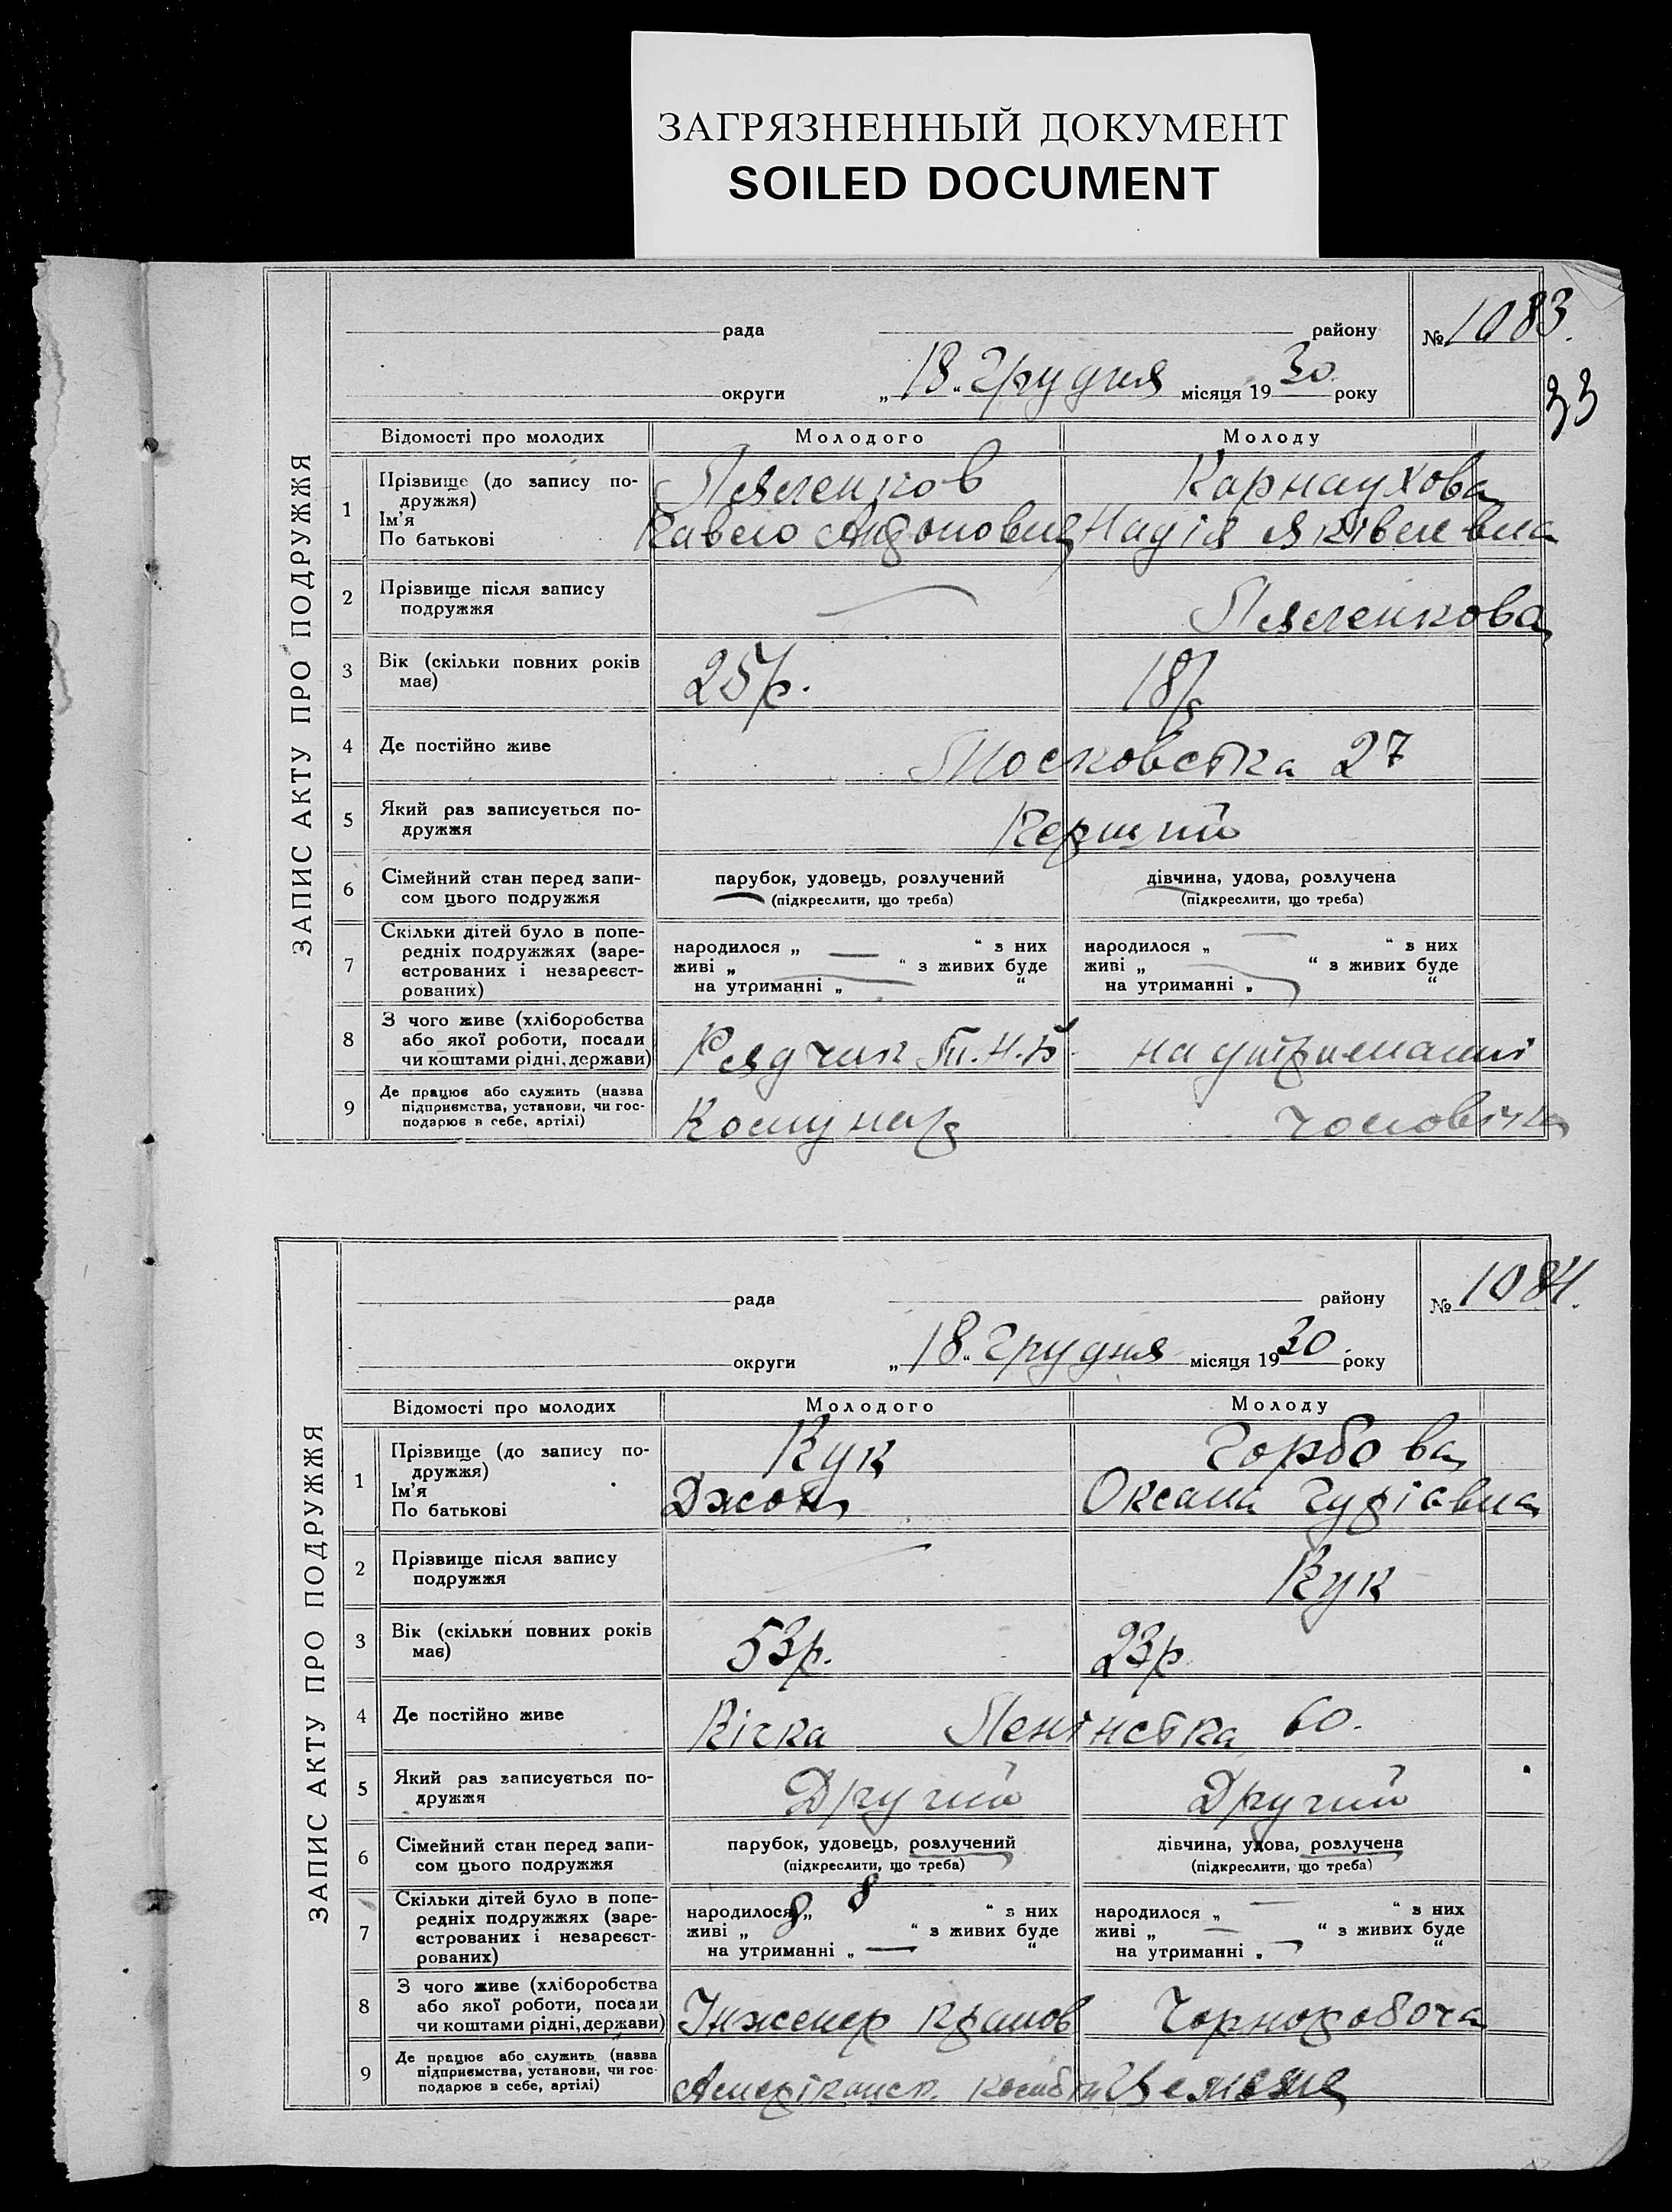 ЗАГРЯЗНЕННЫЙ ДОКУМЕНТ
SOILED DOCUMENT
ЗАПИС АКТУ ПРО ПОДРУЖЖЯ
рада району № 1083.
округи „18“ Грудня місяця 1930 року
33
Відомості про молодих Молодого Молоду
1 Прізвище (до запису по-
дружжя)
Ім'я
По батькові
Карнаухова
Надія Яківлевна
2 Прізвище після запису
подружжя
3 Вік (скільки повних років
має)
25р. 18р
4 Де постійно живе Московська 27
5 Який раз записується по-
дружжя
Перший
6 Сімейний стан перед запи-
сом цього подружжя
парубок, удовець, розлучений
(підкреслити, що треба)
дівчина, удова, розлучена
(підкреслити, що треба)
7 Скільки дітей було в попе-
редніх подружжях (заре-
єстрованих і незареєст-
рованих)
народилося „ — “ з них
живі „ “ з живих буде
на утриманні „ — “
народилося „ — “ з них
живі „ “ з живих буде
на утриманні „ “
8 З чого живе (хліборобства
або якої роботи, посади
чи коштами рідні, держави)
на утриманні
9 Де працює або служить (назва
підприємства, установи, чи гос-
подарює в себе, артілі)
Комунар
чоловіка
ЗАПИС АКТУ ПРО ПОДРУЖЖЯ
рада району № 1084.
округи „18“ Грудня місяця 1930 року
Відомості про молодих Молодого Молоду
1 Прізвище (до запису по-
дружжя)
Ім'я
По батькові
Кук Горбова
Джон Оксана
2 Прізвище після запису
подружжя
Кук
3 Вік (скільки повних років
має)
53р. 23р
4 Де постійно живе Кічкас Ленінська 60.
5 Який раз записується по-
дружжя
Другий Другий
6 Сімейний стан перед запи-
сом цього подружжя
парубок, удовець, розлучений
(підкреслити, що треба)
дівчина, удова, розлучена
(підкреслити, що треба)
7 Скільки дітей було в попе-
редніх подружжях (заре-
єстрованих і незареєст-
рованих)
народилося „ 8 “ з них
живі „ 8 “ з живих буде
на утриманні „ — “
народилося „ — “ з них
живі „ — “ з живих буде
на утриманні „ “
8 З чого живе (хліборобства
або якої роботи, посади
чи коштами рідні, держави)
Інженер кранов Чорноробоча
9 Де працює або служить (назва
підприємства, установи, чи гос-
подарює в себе, артілі)
Американск.